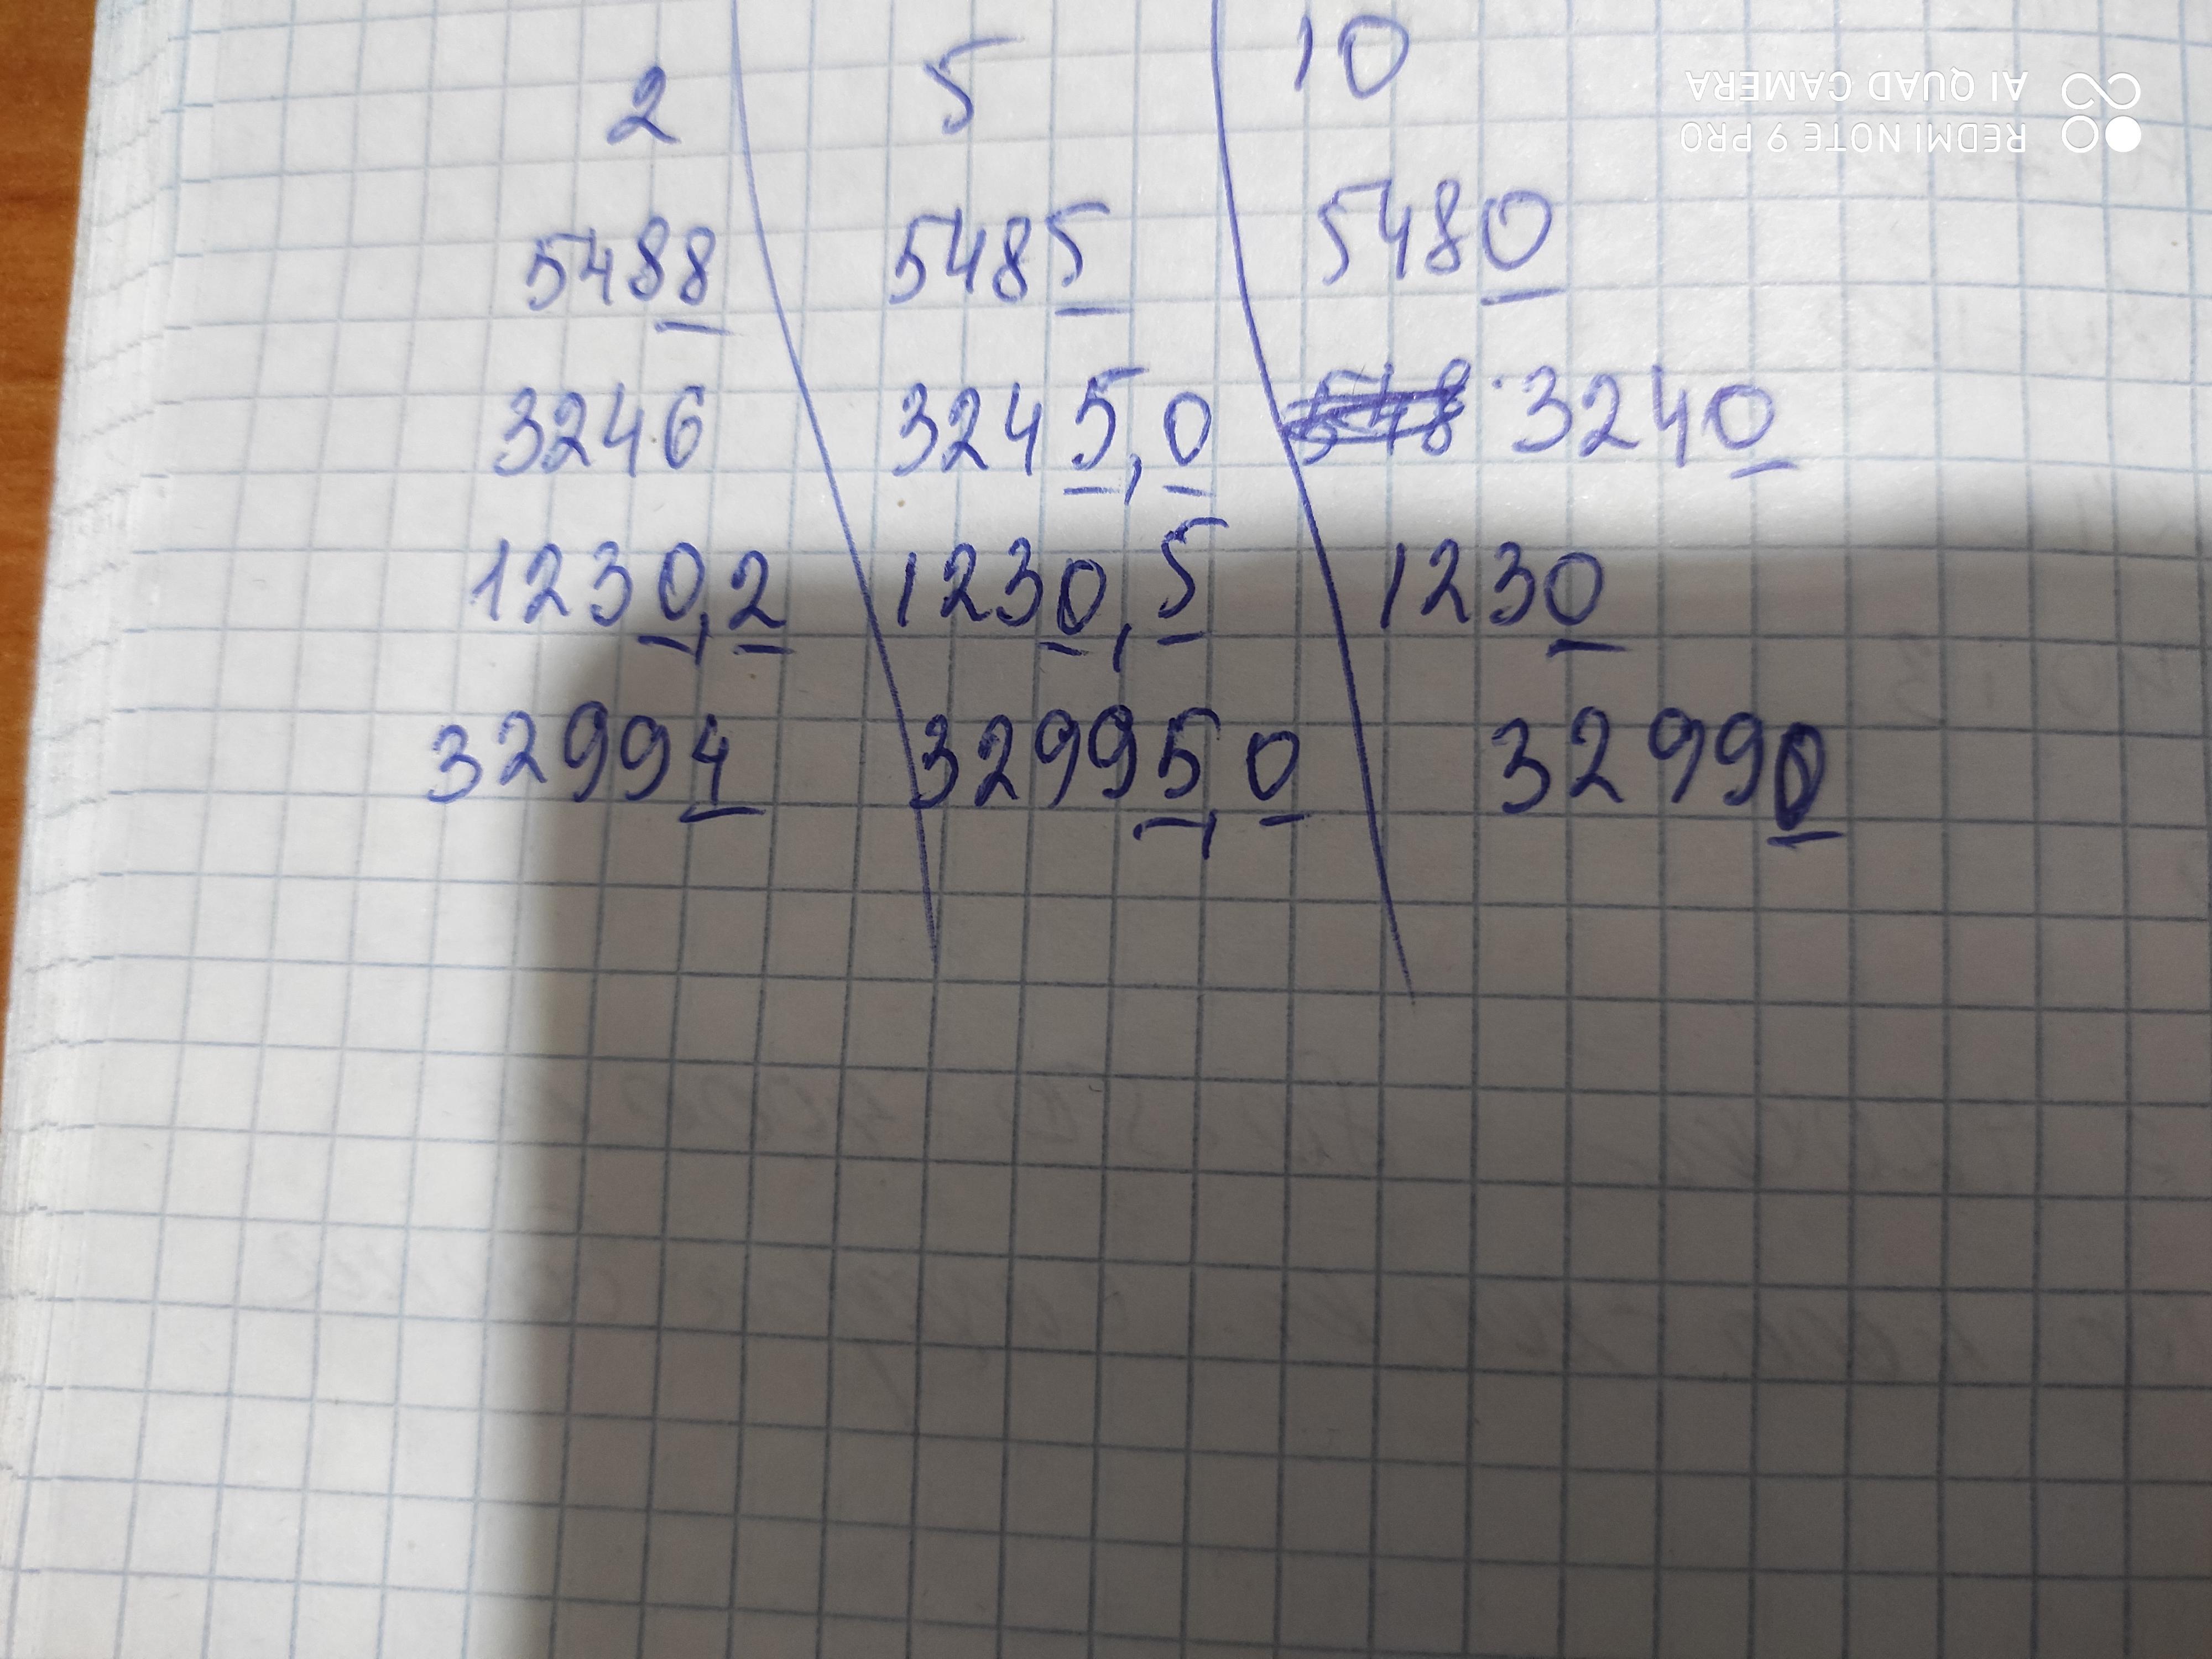 2 5 10
5488 5485 5480
3246 3245,0 548 3240
1230,2 1230,5 1230
32994 32995,0 32990
REDMI NOTE 9 PRO
AI QUAD CAMERA